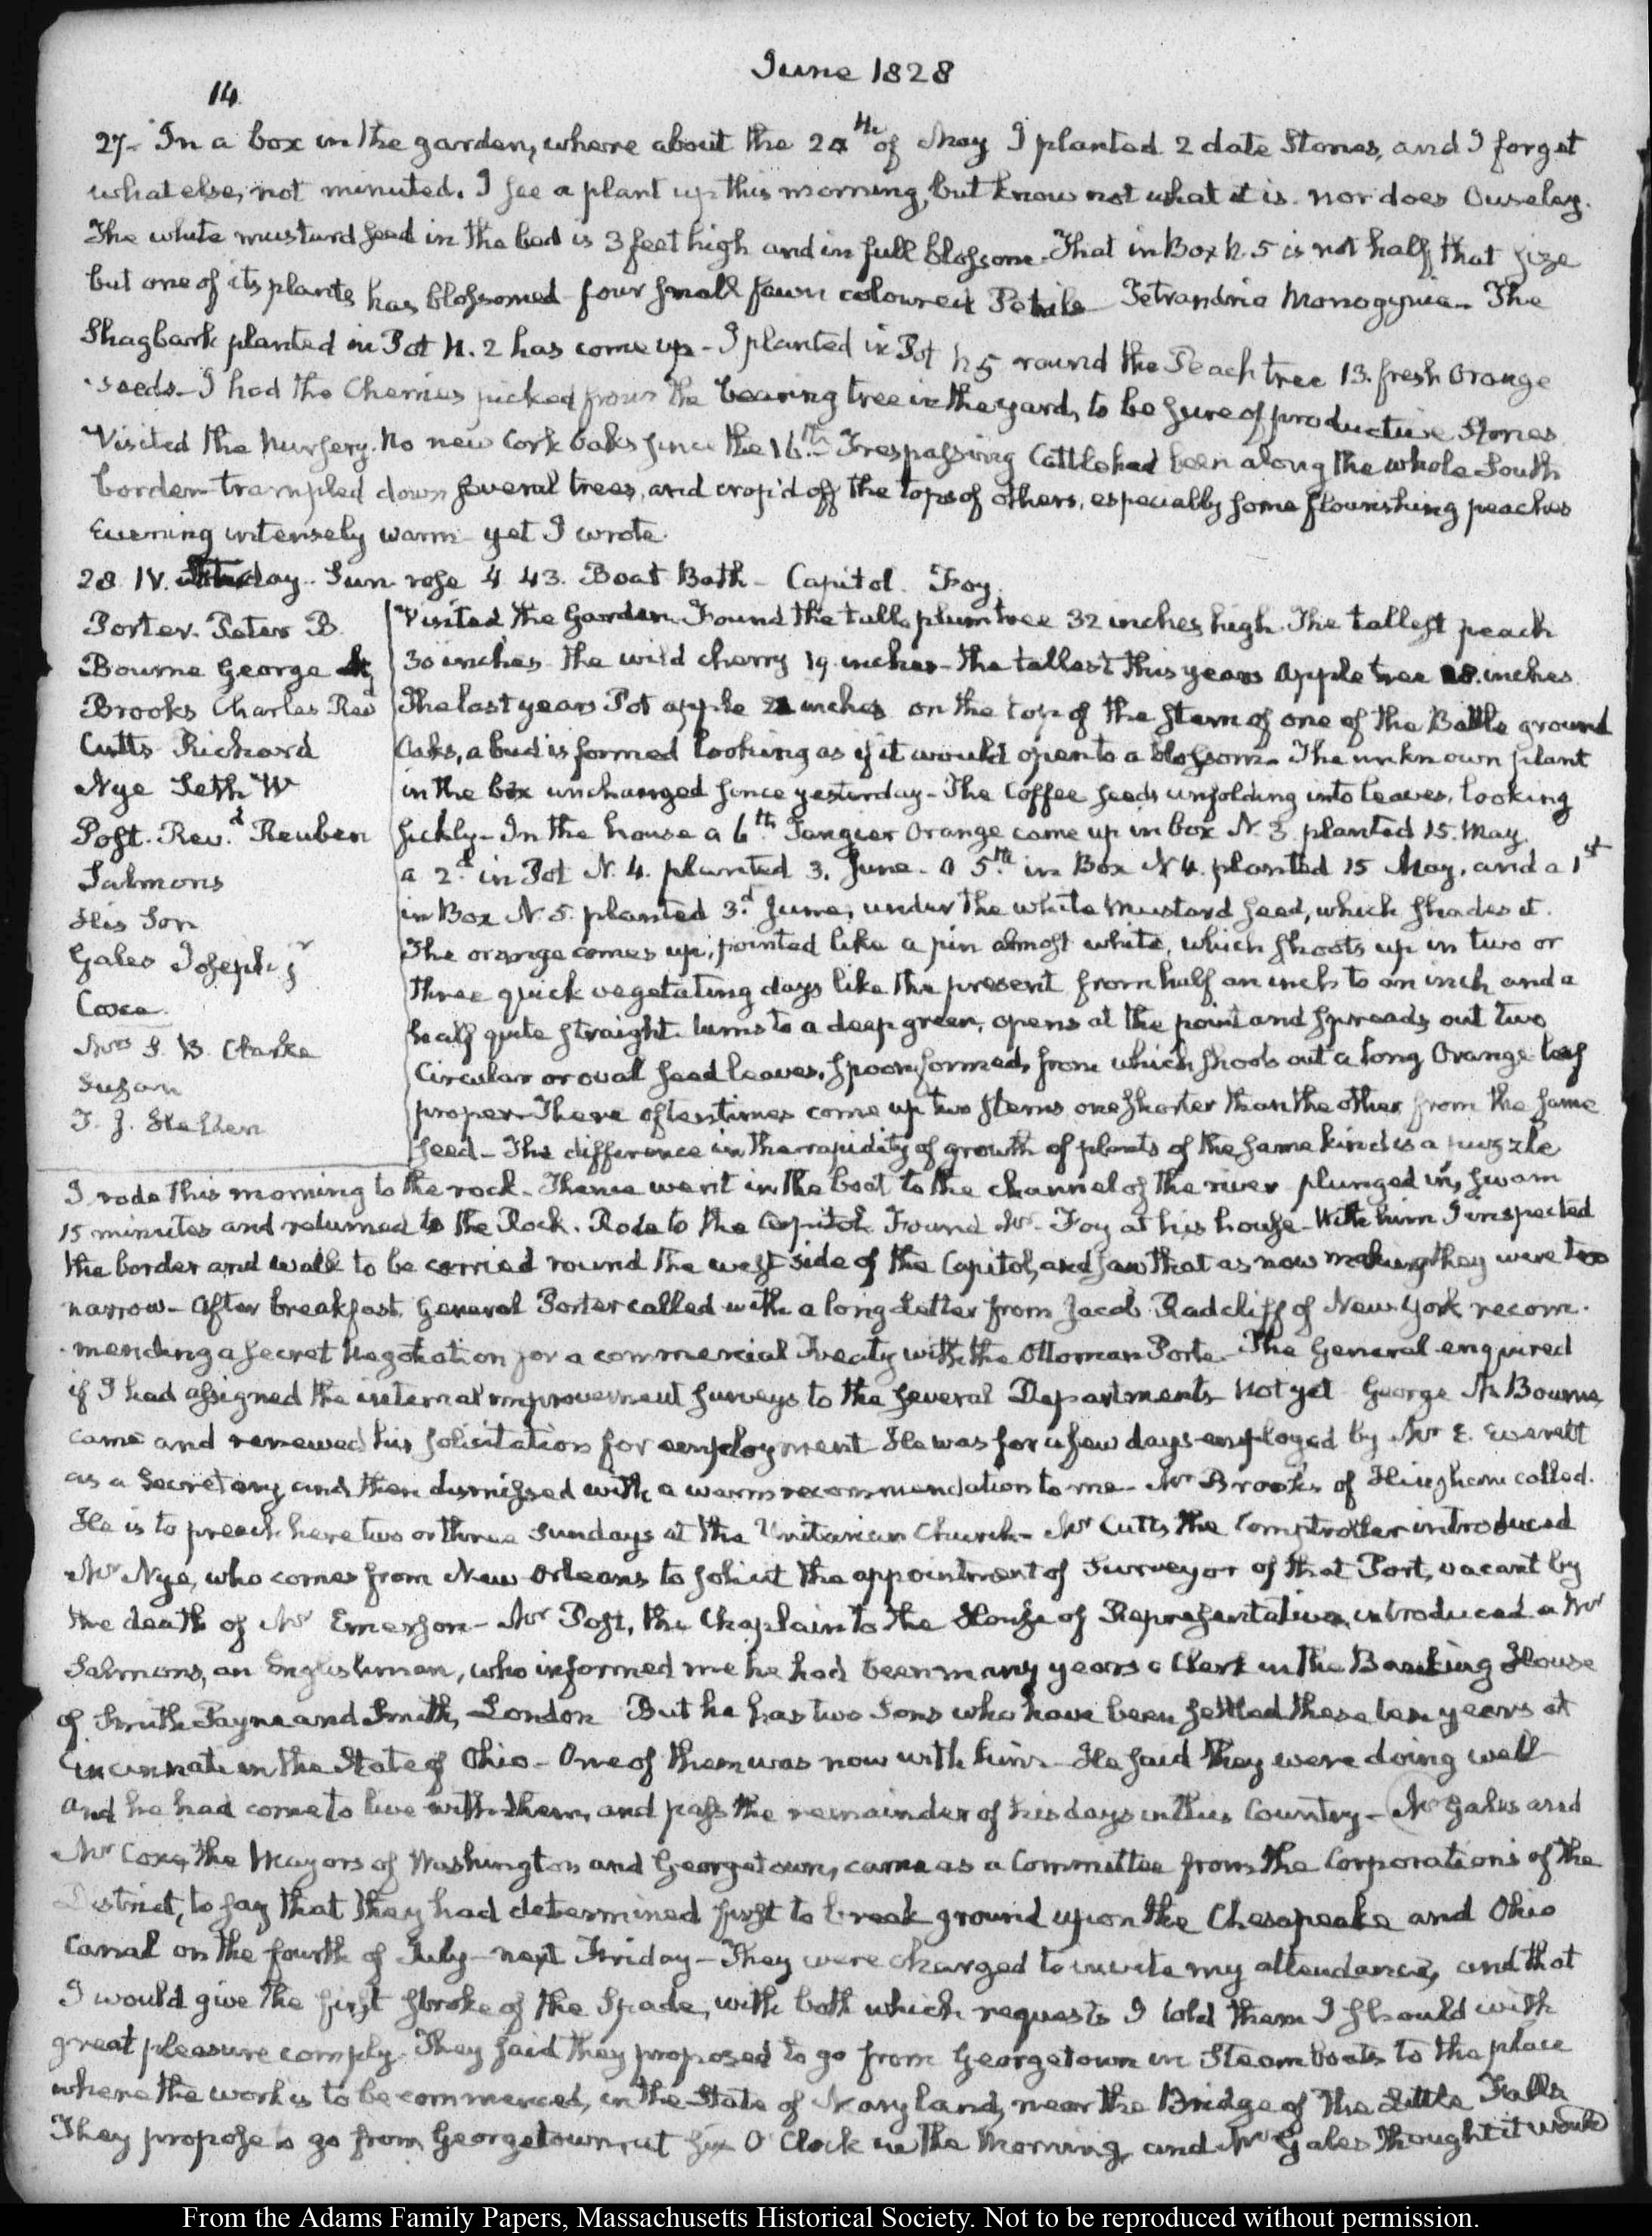 June 1828
14
27. In a box in the garden, where about the 24th of May I planted 2 date Stones, and I forget
what else, not minuted. I see a plant up this morning, but know not what it is. nor does Ouseley.
The white mustard seed in the bed is 3 feet high and in full blossom. That in Box N. 5 is not half that size
but one of its plants has blossomed four small fawn coloured Petals Tetrandria Monogynia. The
Shagbark planted in Pot N. 2 has come up - I planted in Pot N 5 round the Peach tree 13. fresh Orange
seeds. I had the Cherries picked from the bearing tree in the yard, to be sure of productive Stones
Visited the Nursery. No new Cork Oaks since the 16th. Trespassing Cattle had been along the whole South
border trampled down several trees, and crop'd off the tops of others, especially some flourishing peaches
Evening intensely warm - yet I wrote.
28. IV. Saturday. Sun rose 4. 43. Boat Bath - Capitol. Foy.
Porter. Peter B.
Bourne George
Brooks Charles Revd
Cutts Richard
Nye Seth W
Post. Revd. Reuben
Salmons
His Son
Gales Joseph jr
Coxe
Mrs S. B. Clarke
Susan
T. J. Hellen
Visited the Garden. Found the tall plum tree 32 inches high. The tallest peach
30 inches. the wild cherry 19. inches - the tallest this years Apple tree 18. inches
The last years Pot apple inches on the top of the stem of one of the Battle ground
Oaks, a bud is formed looking as if it would open to a blossom. The unknown plant
in the box unchanged since yesterday - The Coffee seeds unfolding into leaves, looking
sickly - In the house a 6th. Tangier Orange came up in box N. 3. planted 15. May
a 2d. in Pot N. 4. planted 3. June. a 5th. in Box N 4. planted 15 May, and a 1st
in Box N. 5. planted 3d. June, under the white Mustard seed, which shades it.
The orange comes up, pointed like a pin almost white, which shoots up in two or
three quick vegetating days like the present from half an inch to an inch and a
half quite straight. turns to a deep green, opens at the point and spreads out two
Circular or oval seed leaves, spoon formed, from which shoots out a long Orange leaf
proper. There oftentimes come up two stems one shorter than the other from the same
seed - The difference in the rapidity of growth of plants of the same kind is a puzzle
I rode this morning to the rock. Thence went in the boat to the channel of the river plunged in, swam
15 minutes and returned to the Rock. Rode to the Capitol Found Mr. Foy at his house - With him I inspected
the border and walk to be carried round the west side of the Capitol, and saw that as now making they were too
narrow - After breakfast General Porter called with a long Letter from Jacob Radcliff of New-York recom-
mending a secret Negotiation for a commercial Treaty with the Ottoman Porte. The General enquired
if I had assigned the internal improvement surveys to the several Departments Not yet George M Bourne
came and renewed his solicitation for employment He was for a few days employed by Mr E. Everett
as a Secretary, and then dismissed with a warm recommendation to me - Mr Brooks of Hingham called.
He is to preach here two or three Sundays at the Unitarian Church - Mr Cutts the Comptroller introduced
Mr Nye, who comes from New Orleans to solicit the appointment of Surveyor of that Port, vacant by
the death of Mr Emerson - Mr Post, the Chaplain to the House of Representatives introduced a Mr
Salmons, an Englishman, who informed me he had been many years a Clerk in the Banking House
of Smith Payne and Smith, London But he has two Sons who have been settled these ten years at
Cincinnati in the State of Ohio - One of them was now with him. He said they were doing well
and he had come to live with them, and pass the remainder of his days in this Country - Mr Gales and
Mr Coxe, the Mayors of Washington and Georgetown, came as a Committee from the Corporations of the
District, to say that they had determined first to break ground upon the Chesapeake and Ohio
Canal on the fourth of July - next Friday - They were charged to invite my attendance, and that
I would give the first stroke of the Spade, with both which requests I told them I should with
great pleasure comply. They said they proposed to go from Georgetown in Steam boats to the place
where the work is to be commenced, in the State of Maryland, near the Bridge of the Little Falls
They propose to go from Georgetown, at six O'Clock in the Morning, and Mr Gales thought it would
From the Adams Family Papers, Massachusetts Historical Society. Not to be reproduced without permission.